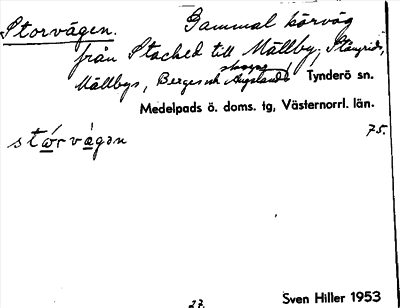 Storvägen. Gammal körväg
från Stacked till Mällby, Stångrids,
skogen
Mällbys, Berges och Angslands Tynderö sn.
Medelpads ö. doms. tg, Västernorrl. län.
75.
stårvägən
27.
Sven Hiller 1953